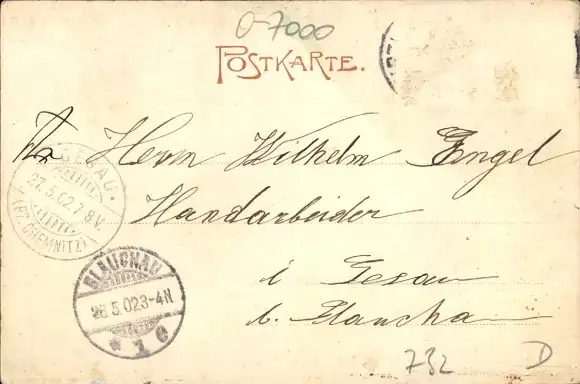 0-7000
POSTKARTE.
An Herrn Wilhelm Engel
Handarbeider
i Gesau
b. Glaucha
GESAU
27.5.02.7-8V.
(BZ. CHEMNITZ)
GLAUCHAU
26.5.02.3-4N
* 1 c
732 D